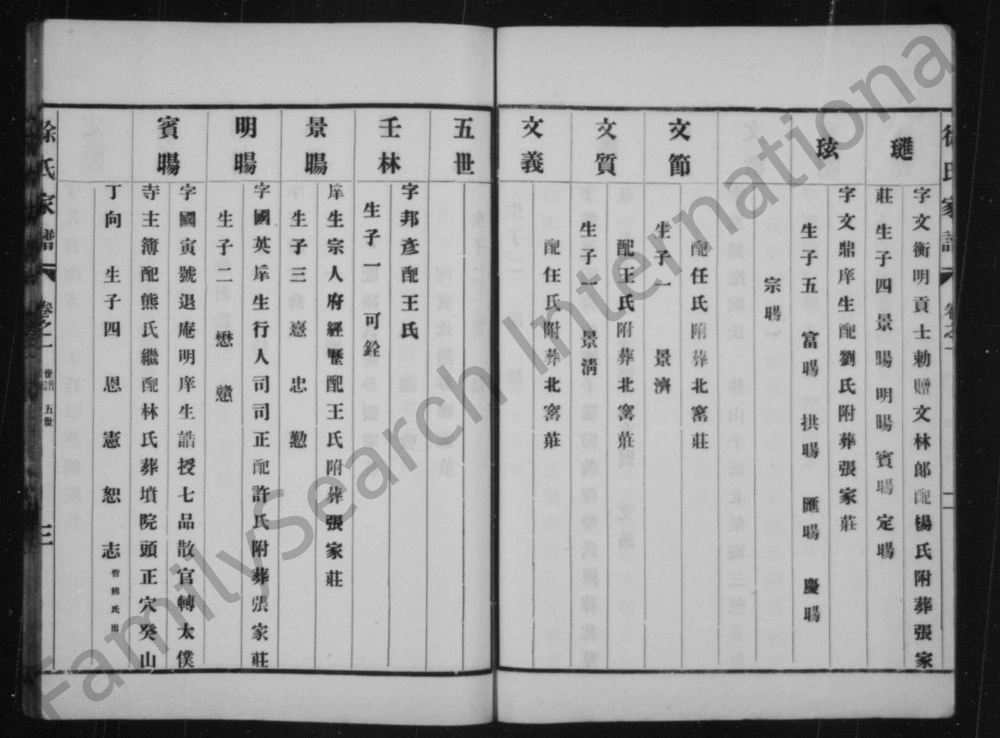 徐氏家譜
卷之一
二
璡
字文衡明貢士勅贈文林郎配楊氏附葬張家
莊 生子四 景暘 明暘 賓暘 定暘
玹
字文鼎庠生配劉氏附葬張家莊
生子五 富暘 拱暘 匯暘 慶暘
宗暘
文節
配任氏附葬北窰莊
生子一 景濟
文質
配王氏附葬北窰莊
生子一 景清
文義
配任氏附葬北窰莊
五世
壬林
字邦彥配王氏
生子一 可銓
景暘
庠生宗人府經歷配王氏附葬張家莊
生子三 忠
明暘
字國英庠生行人司司正配許氏附葬張家莊
生子二 懋
賓暘
字國寅號退庵明庠生誥授七品散官轉太僕
寺主簿配熊氏繼配林氏葬墳院頭正穴癸山
丁向 生子四 恩 憲 恕 志 皆熊氏出
徐氏家譜
卷之一 世譜 五世
三
FamilySearch International